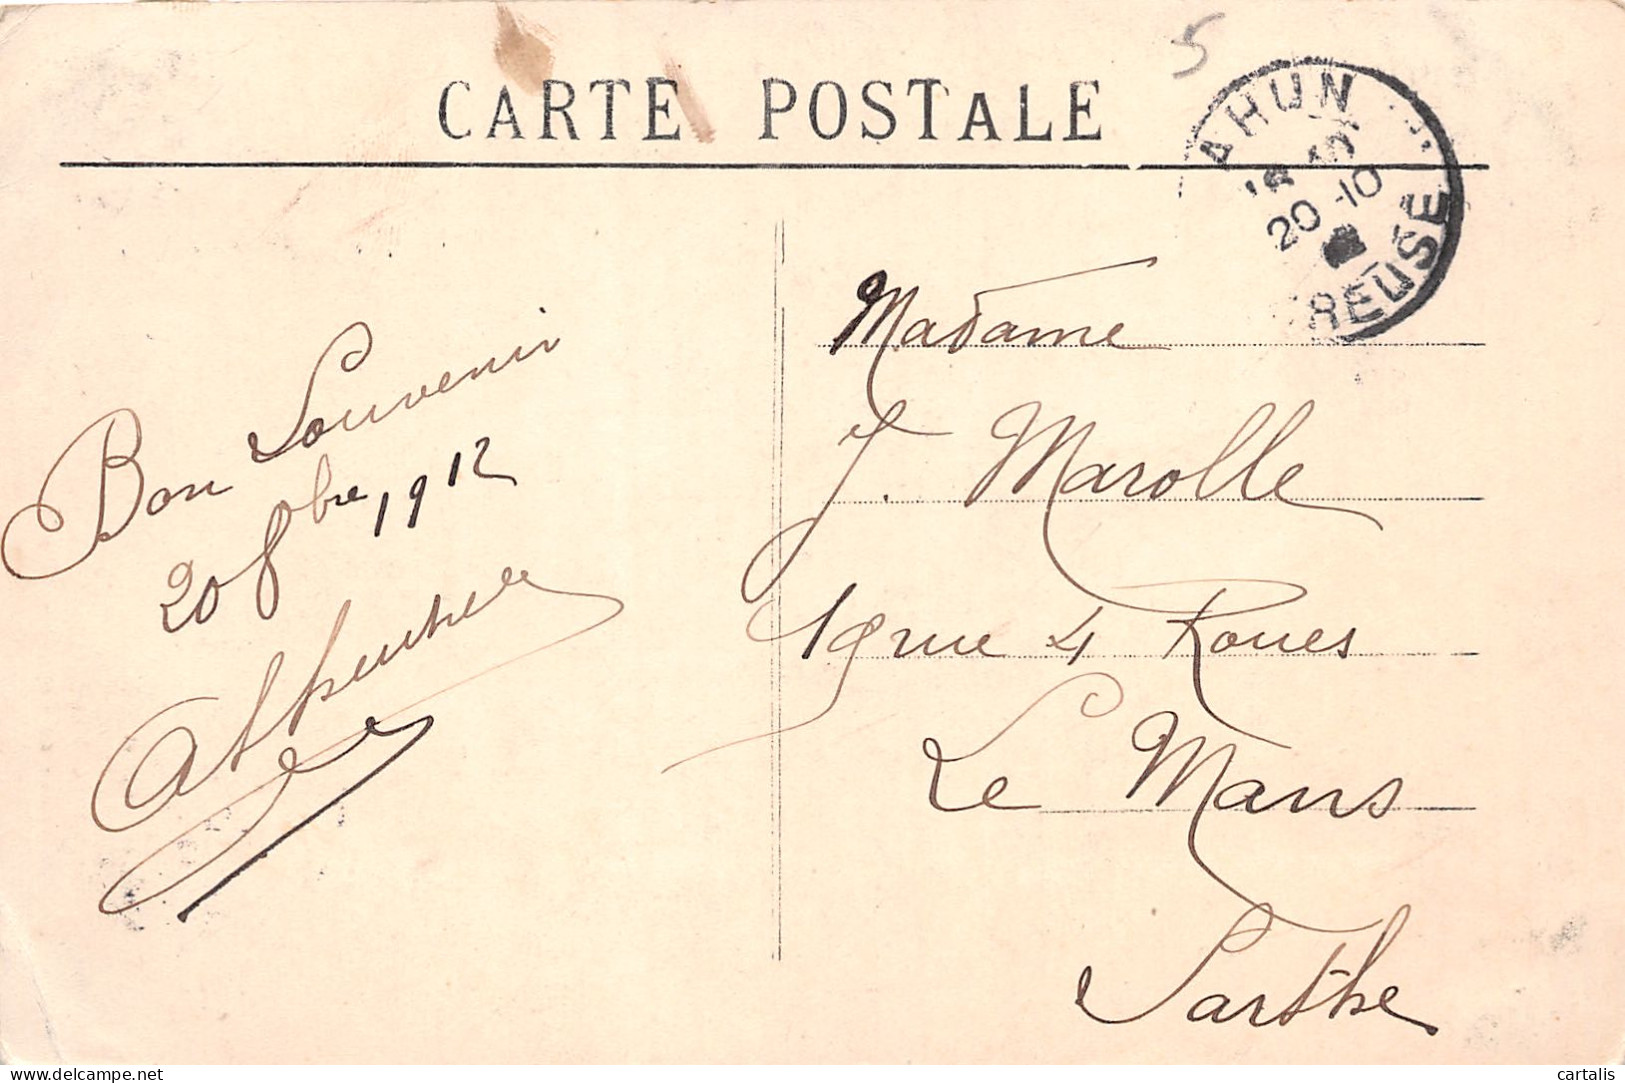 5
CARTE POSTALE
AHUN
20 -10
CREUSE
Bon Souvenir
20 8bre 1912
Madame
J. Marolle
19 rue 4 Roues
Le Mans
Sarthe
delcampe.net
cartalis